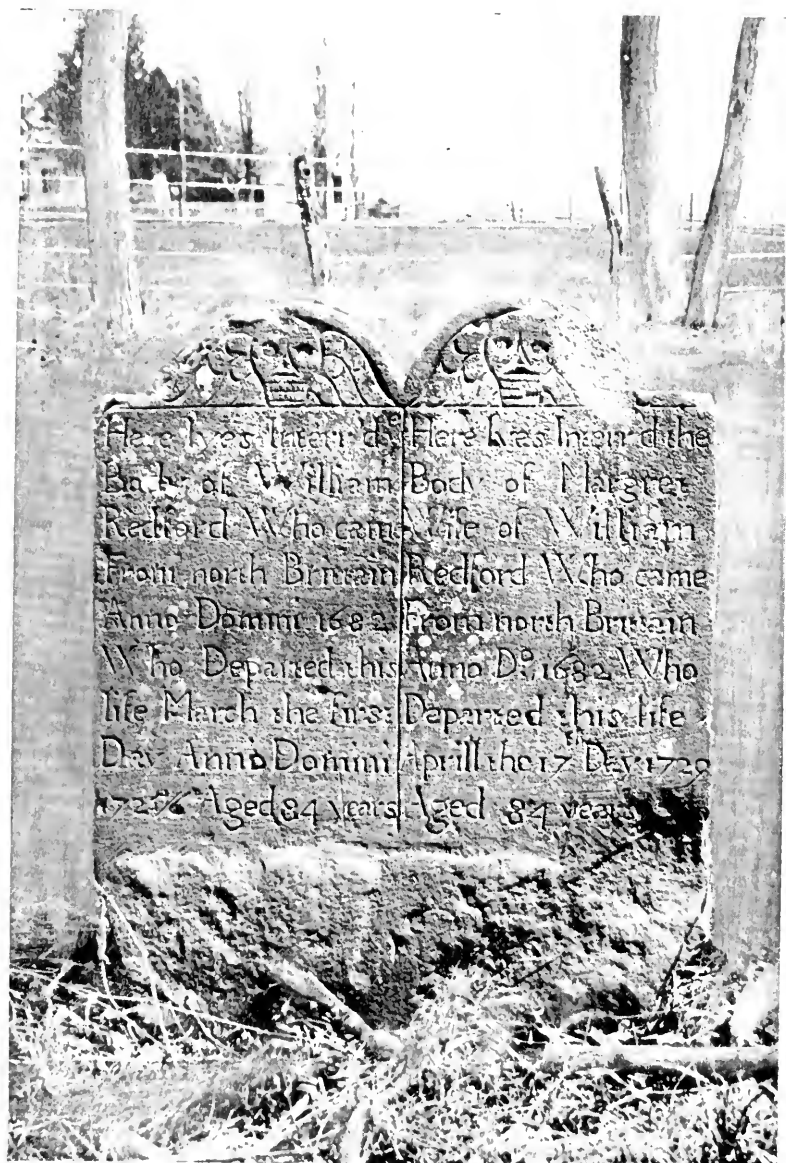 Here Lyes Interr'd yᵉ
Body of William
Redford Who came
From north Brittain
Anno Domini 1682
Who Departed this
life March the first
Day Anno Domini
1725/6 Aged 84 years
Here Lyes Interr'd the
Body of Margret
Wife of William
Redford Who came
From north Brittain
Anno Dº. 1682 Who
Departed this life
Aprill the 17th Day 1729
Aged 84 years